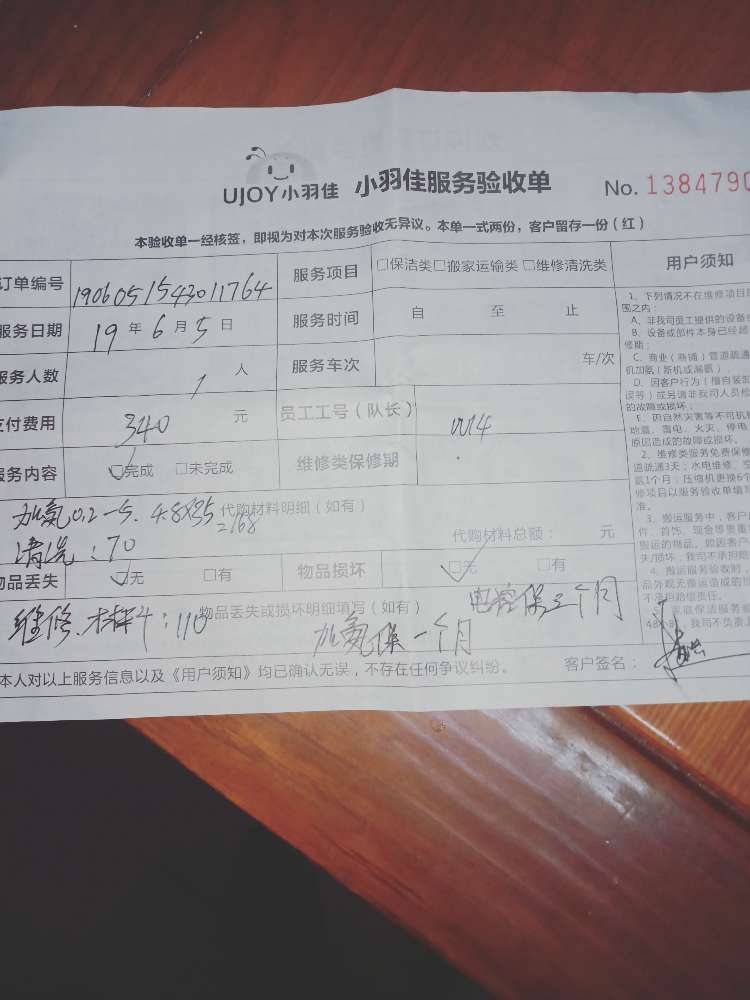 UJOY小羽佳 小羽佳服务验收单 No. 1384790
本验收单一经核签，即视为对本次服务验收无异议。本单一式两份，客户留存一份（红）
订单编号 1906051543011764 服务项目 □保洁类□搬家运输类□维修清洗类
服务日期 19年6月5日 服务时间 自 至 止
服务人数 1人 服务车次 车/次
支付费用 340元 员工工号（队长） 0014
服务内容 □完成 □未完成 维修类保修期
加氨0.2-5. 4.8×35=168 代购材料明细（如有）
清洗：70 代购材料总额： 元
物品丢失 □无 □有 物品损坏 □无 □有
维修.材料：110 物品丢失或损坏明细填写（如有） 电容保三个月
加氨保一个月
本人对以上服务信息以及《用户须知》均已确认无误，不存在任何争议纠纷。 客户签名：
用户须知
1、下列情况不在维修项目
围之内：
A、非我司员工提供的设备
B、设备或部件本身已经超
修期；
C、商业（商铺）管道疏通
机加氨（新机或漏氨）；
D、因客户行为（擅自装
误等）或另请非我司人员
的故障或损坏；
E、因自然灾害等不可机
地震、雷电、火灾、停电
原因造成的故障或损坏。
2、维修类服务免费保修
道疏通3天；水电维修、
氨1个月；压缩机更换6个
修项目以服务验收单填
准。
3、搬运服务中，客户
件、首饰、现金等贵重
搬运的物品。如因客户
失/损坏，我司不承担
4、搬运服务验收时，
品外观无搬运造成的
不承担赔偿责任。
家庭保洁服务
48小时，我司不负责